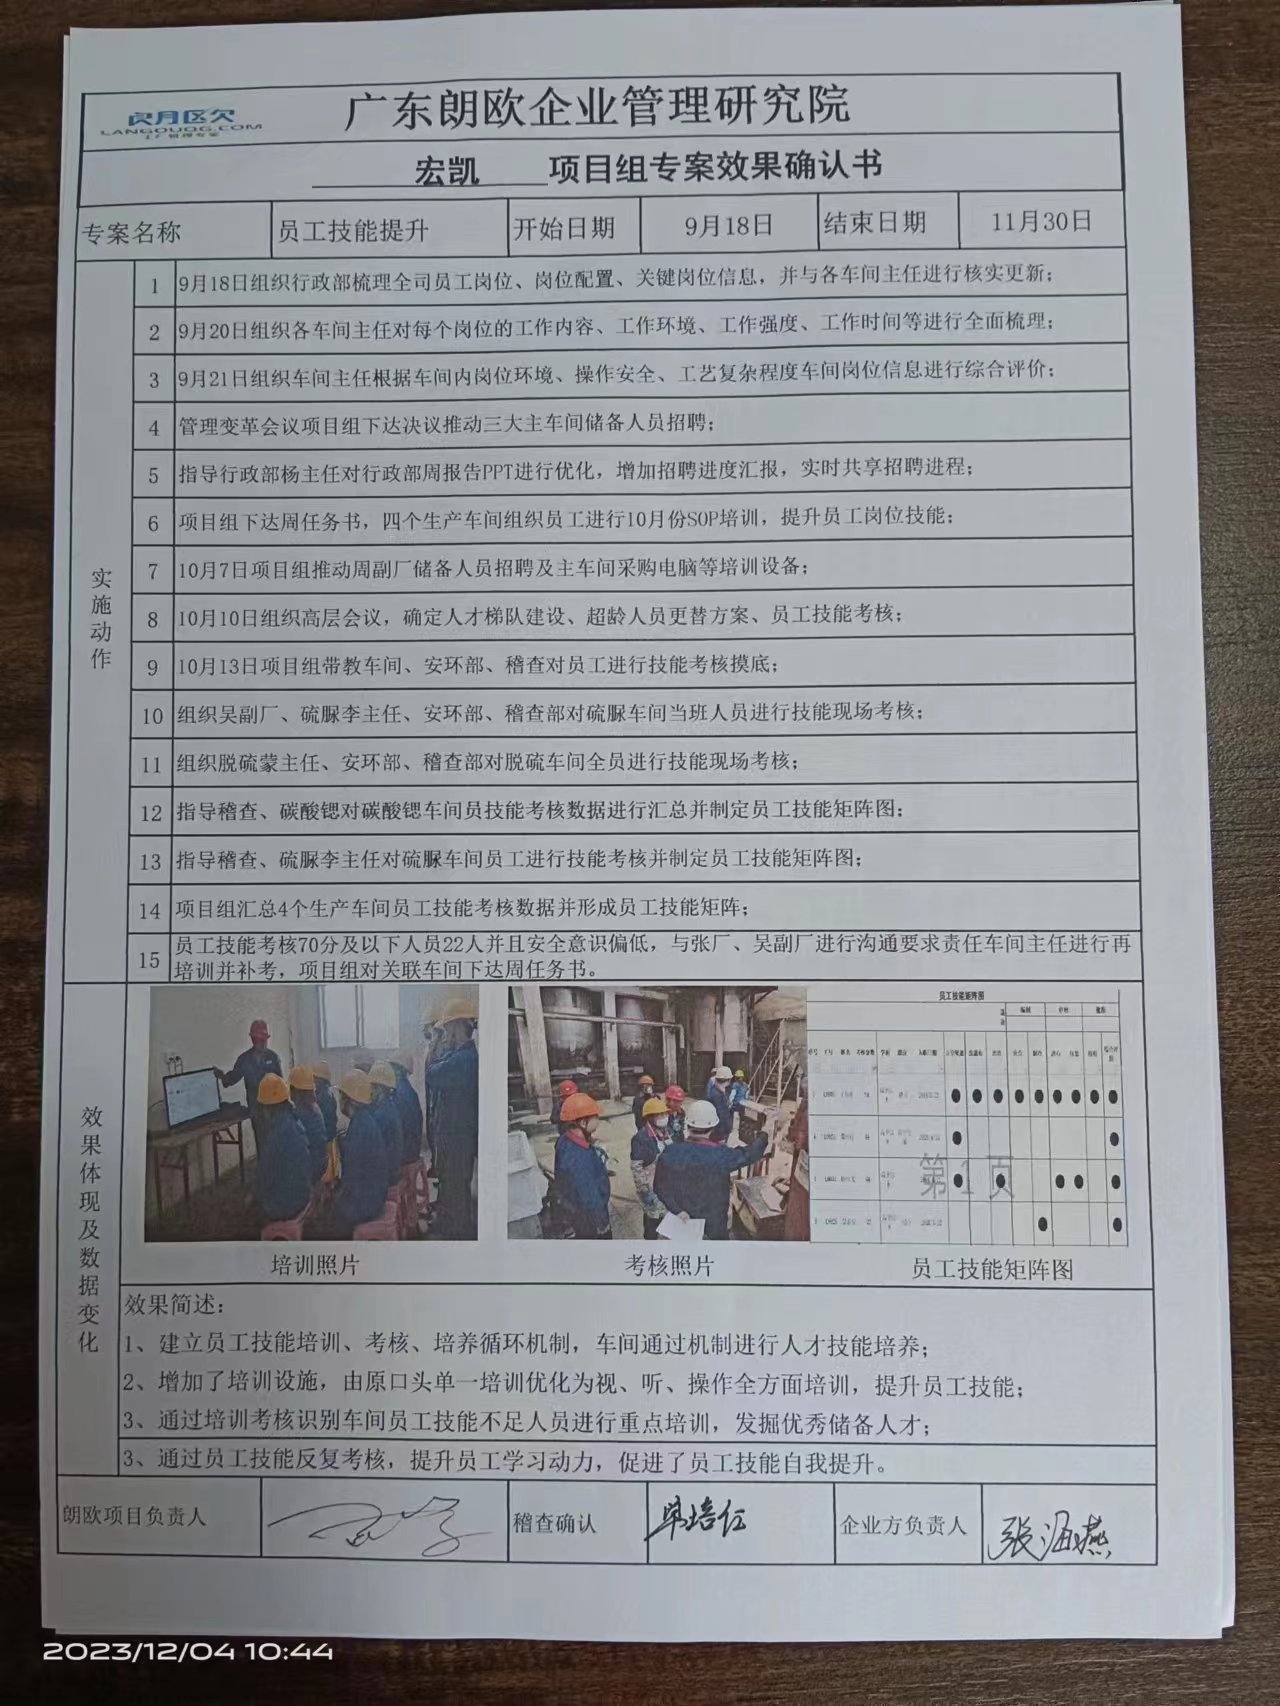 朗欧
LANGOUQG.COM
工厂管理专家
广东朗欧企业管理研究院
宏凯 项目组专案效果确认书
专案名称 员工技能提升 开始日期 9月18日 结束日期 11月30日
实施动作
1 9月18日组织行政部梳理全司员工岗位、岗位配置、关键岗位信息，并与各车间主任进行核实更新；
2 9月20日组织各车间主任对每个岗位的工作内容、工作环境、工作强度、工作时间等进行全面梳理；
3 9月21日组织车间主任根据车间内岗位环境、操作安全、工艺复杂程度车间岗位信息进行综合评价；
4 管理变革会议项目组下达决议推动三大主车间储备人员招聘；
5 指导行政部杨主任对行政部周报告PPT进行优化，增加招聘进度汇报，实时共享招聘进程；
6 项目组下达周任务书，四个生产车间组织员工进行10月份SOP培训，提升员工岗位技能；
7 10月7日项目组推动周副厂储备人员招聘及主车间采购电脑等培训设备；
8 10月10日组织高层会议，确定人才梯队建设、超龄人员更替方案、员工技能考核；
9 10月13日项目组带教车间、安环部、稽查对员工进行技能考核摸底；
10 组织吴副厂、硫脲李主任、安环部、稽查部对硫脲车间当班人员进行技能现场考核；
11 组织脱硫蒙主任、安环部、稽查部对脱硫车间全员进行技能现场考核；
12 指导稽查、碳酸锶对碳酸锶车间员技能考核数据进行汇总并制定员工技能矩阵图；
13 指导稽查、硫脲李主任对硫脲车间员工进行技能考核并制定员工技能矩阵图；
14 项目组汇总4个生产车间员工技能考核数据并形成员工技能矩阵；
15 员工技能考核70分及以下人员22人并且安全意识偏低，与张厂、吴副厂进行沟通要求责任车间主任进行再
培训并补考，项目组对关联车间下达周任务书。
效果体现及数据变化
员工技能矩阵图
第1页
培训照片 考核照片 员工技能矩阵图
效果简述：
1、建立员工技能培训、考核、培养循环机制，车间通过机制进行人才技能培养；
2、增加了培训设施，由原口头单一培训优化为视、听、操作全方面培训，提升员工技能；
3、通过培训考核识别车间员工技能不足人员进行重点培训，发掘优秀储备人才；
3、通过员工技能反复考核，提升员工学习动力，促进了员工技能自我提升。
朗欧项目负责人 稽查确认 企业方负责人 张海燕
2023/12/04 10:44